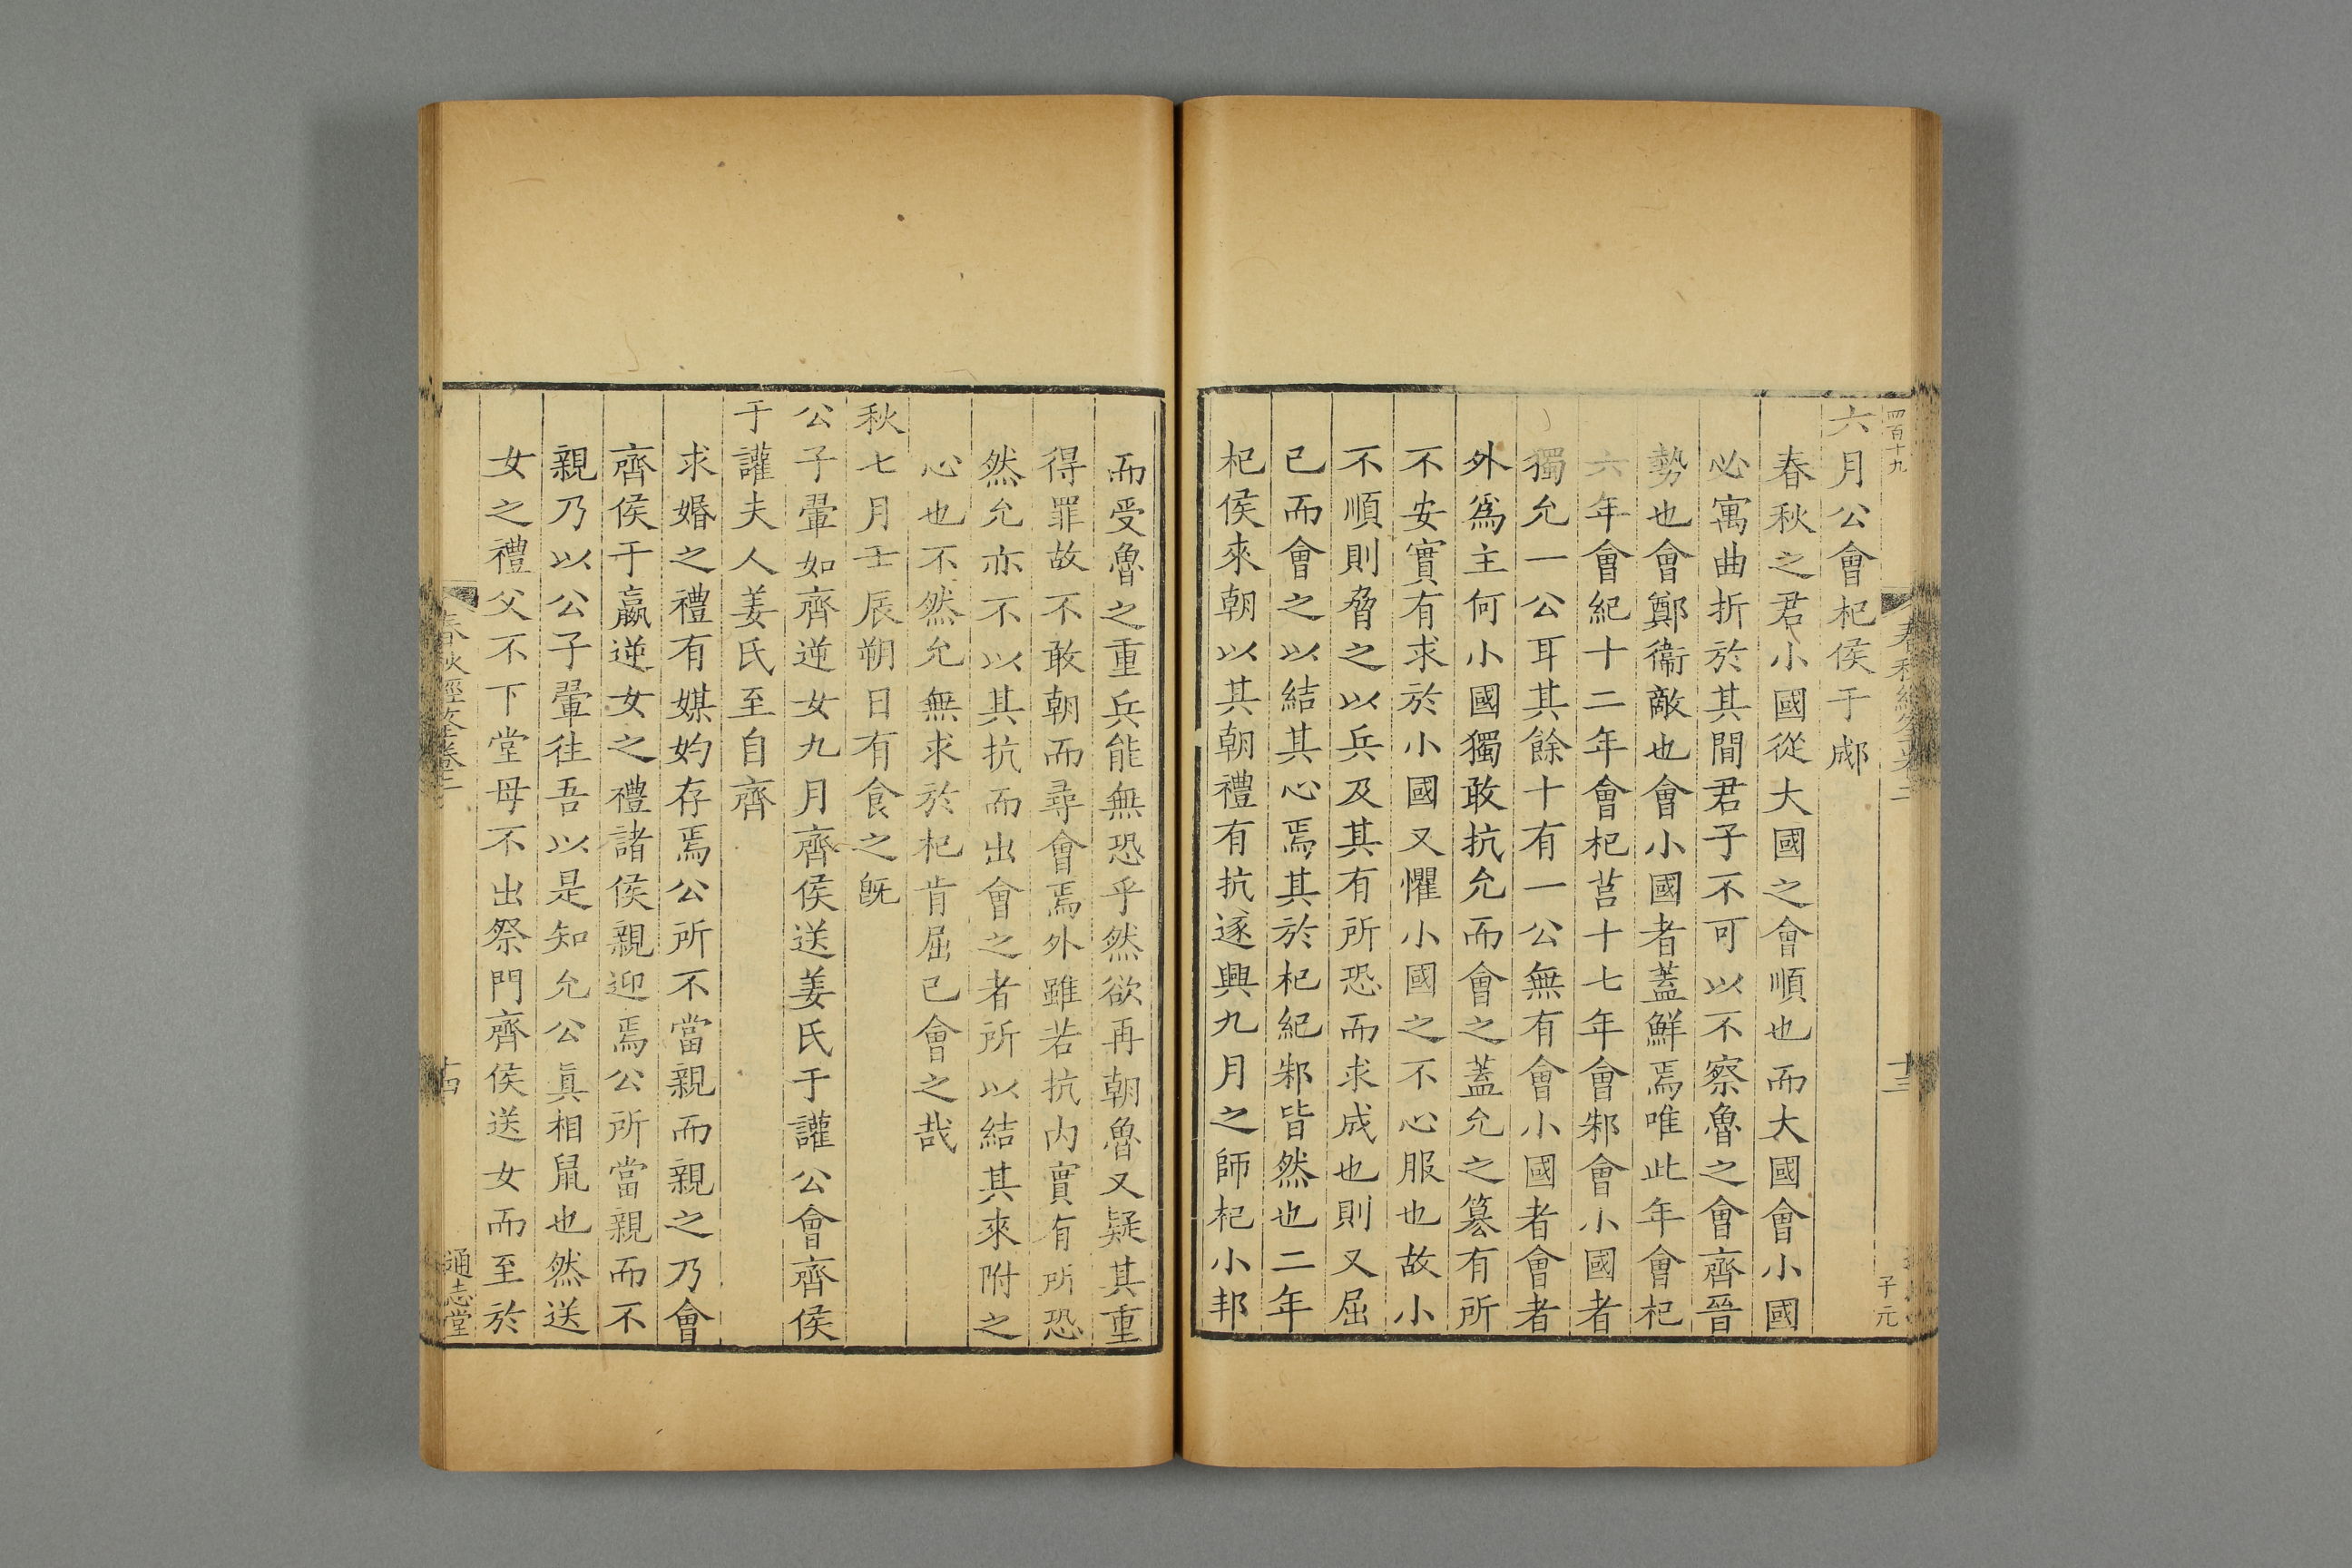 四百十九
六月公會杞侯于郕
春秋之君小國從大國之會順也而大國會小國
必寓曲折於其間君子不可以不察魯之會齊晉
勢也會鄭衞敵也會小國者蓋鮮焉唯此年會杞
六年會紀十二年會杞莒十七年會邾會小國者
獨允一公耳其餘十有一公無有會小國者會者
外爲主何小國獨敢抗允而會之蓋允之簒有所
不安實有求於小國又懼小國之不心服也故小
不順則脅之以兵及其有所恐而求成也則又屈
已而會之以結其心焉其於杞紀邾皆然也二年
杞侯來朝以其朝禮有抗逐興九月之師杞小邦
十三
子元
而受魯之重兵能無恐乎然欲再朝魯又疑其重
得罪故不敢朝而尋會焉外雖若抗内實有所恐
然允亦不以其抗而出會之者所以結其來附之
心也不然允無求於杞肯屈已會之哉
秋七月壬辰朔日有食之旣
公子翬如齊逆女九月齊侯送姜氏于讙公會齊侯
于讙夫人姜氏至自齊
求婚之禮有媒妁存焉公所不當親而親之乃會
齊侯于嬴逆女之禮諸侯親迎焉公所當親而不
親乃以公子翬往吾以是知允公眞相鼠也然送
女之禮父不下堂母不出祭門齊侯送女而至於
春秋經筌卷二
十四
通志堂